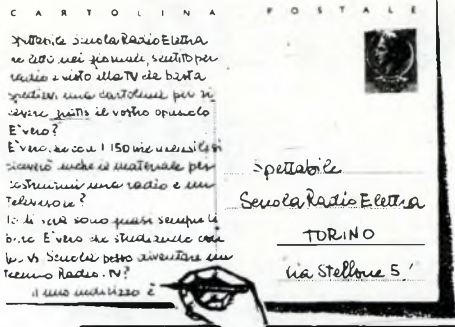 CARTOLINA POSTALE
Spettabile Scuola Radio Elettra
ho letto sui giornali, sentito per
radio e visto alla TV che basta
spedirvi una cartolina per ri
cevere gratis il vostro opuscolo
E' vero?
E' vero, che con 1150 lire
riceverò anche il materiale per
costruirmi una radio e un
Televisore?
Io di sera sono quasi sempre li
bero. E' vero che studiando con
la vs Scuola posso diventare un
tecnico Radio-TV?
il mio indirizzo è
Spettabile
Scuola Radio Elettra
TORINO
via Stellone 5